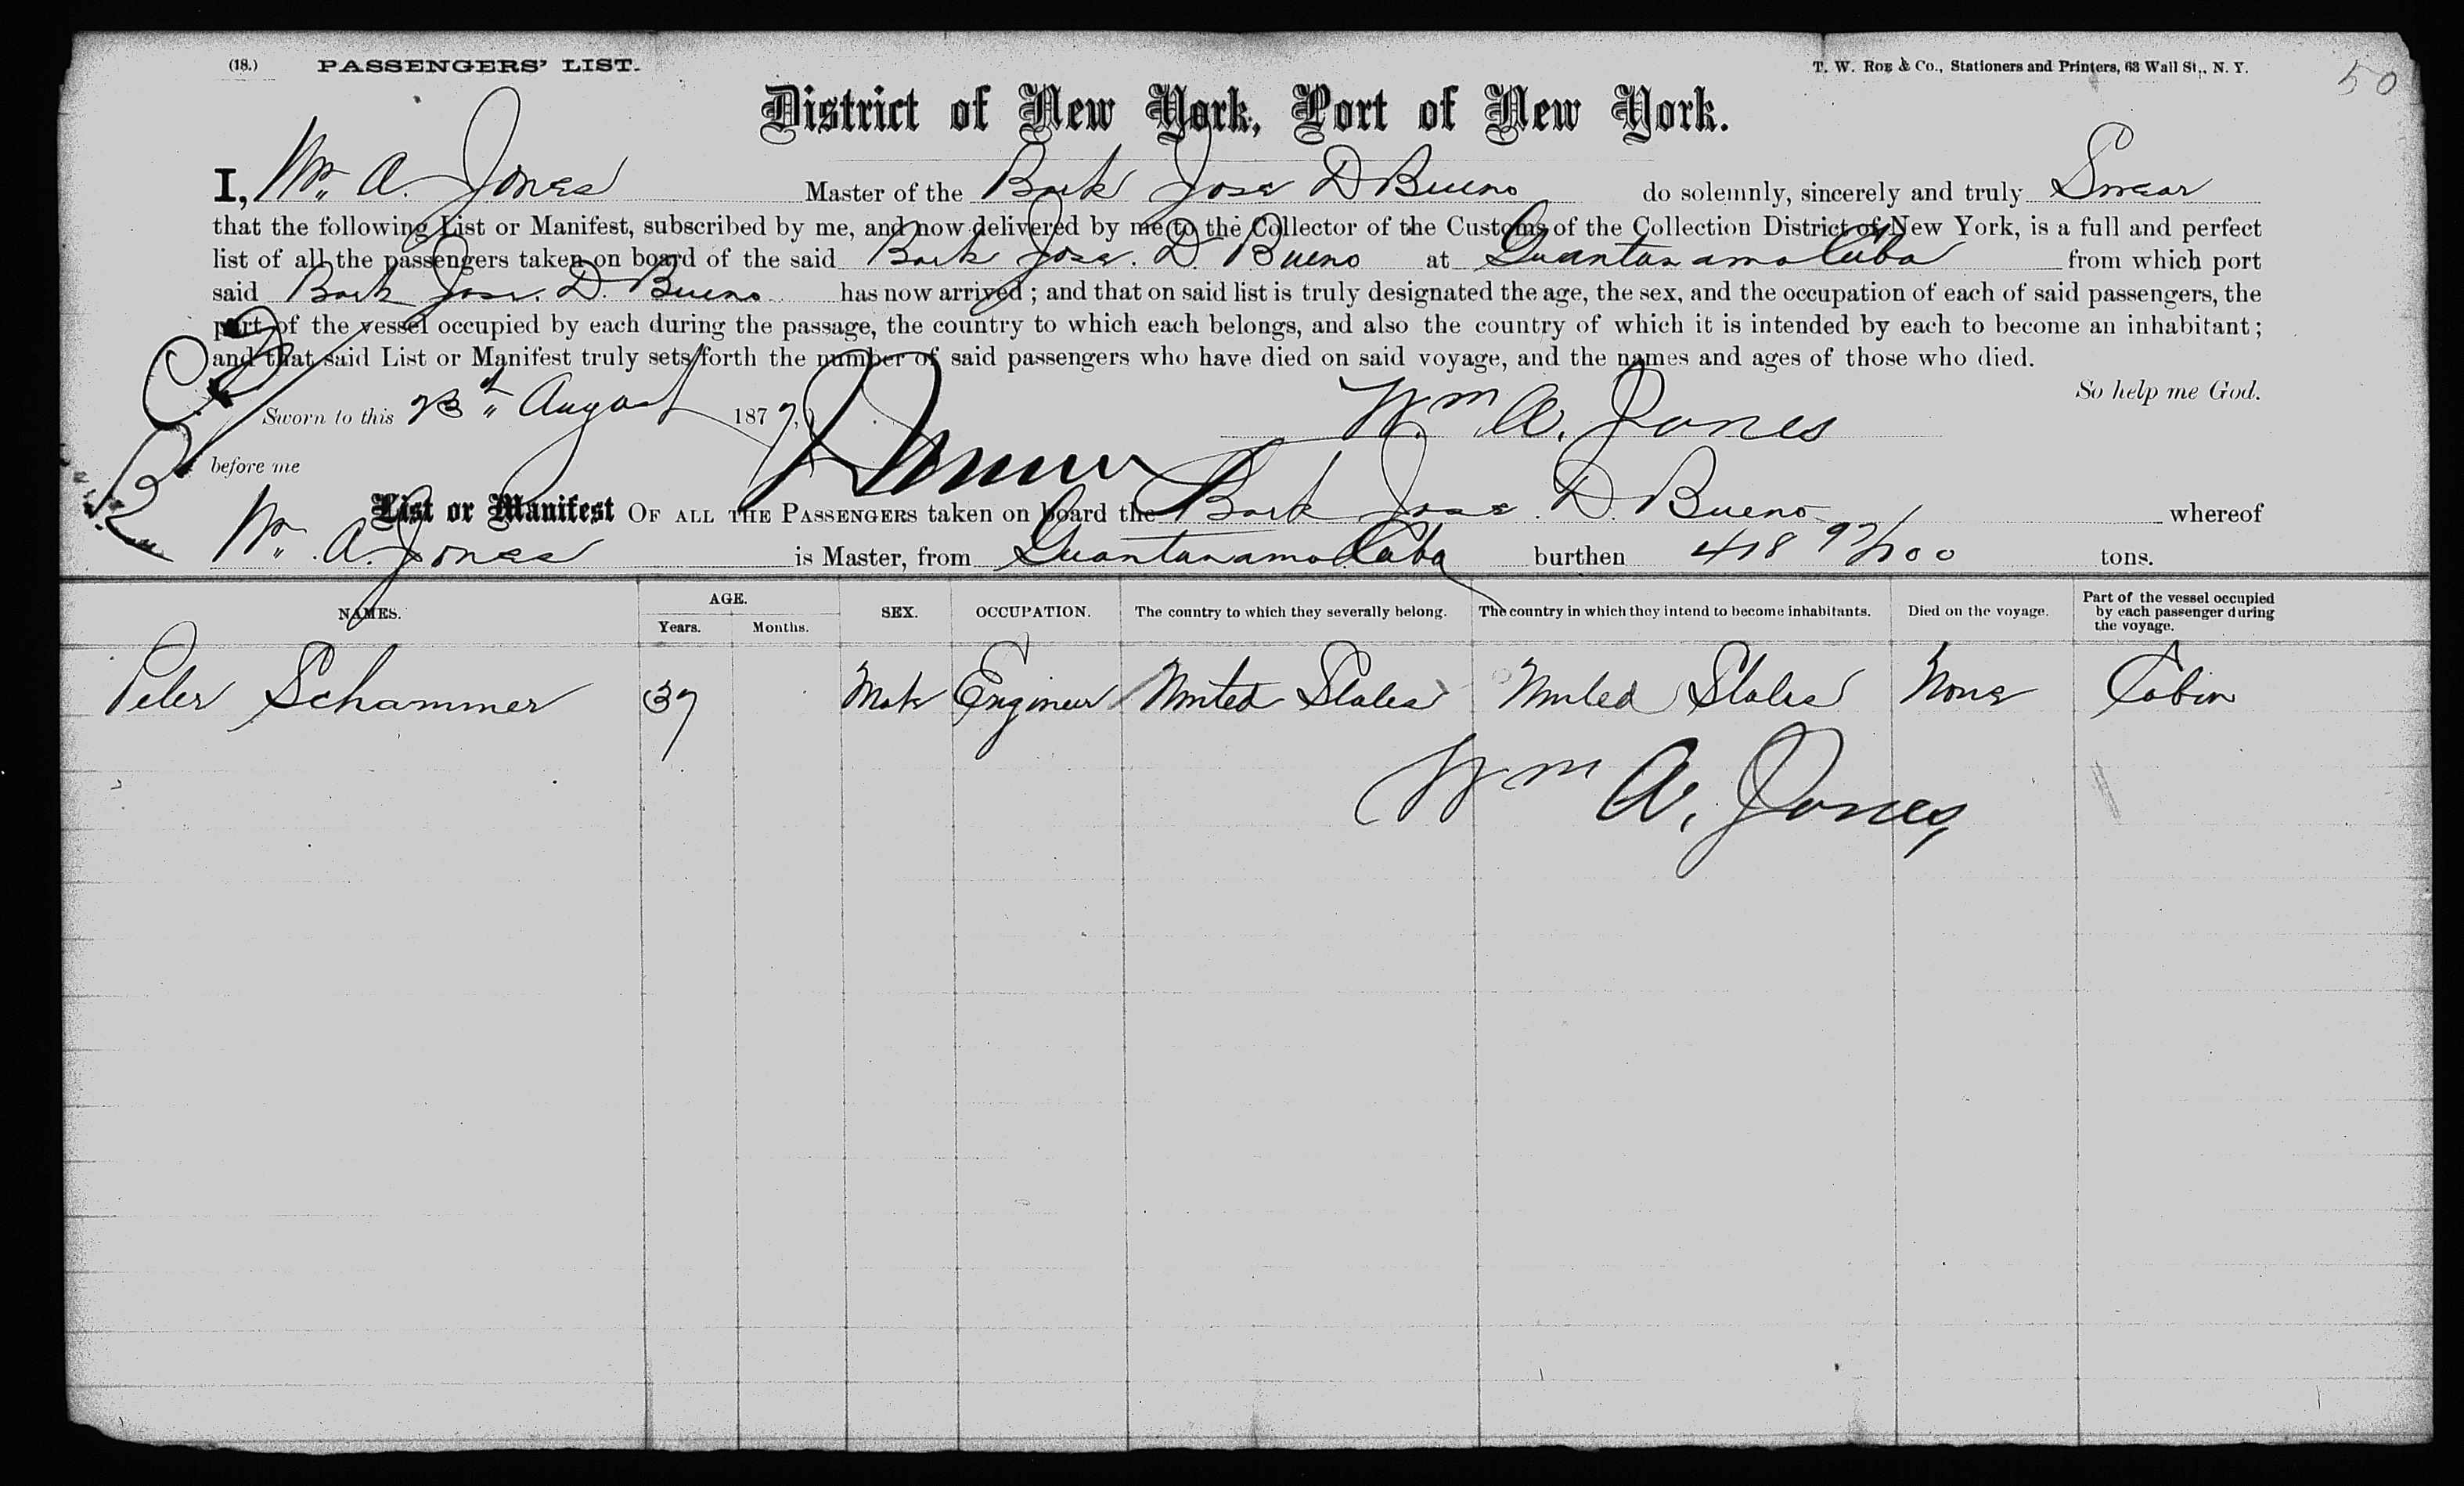 (18.) PASSENGERS' LIST. T. W. Roe & Co., Stationers and Printers, 63 Wall St., N. Y. 50
District of New York, Port of New York.
I, Wm. A. Jones Master of the Bark Jose D Bueno do solemnly, sincerely and truly Swear
that the following List or Manifest, subscribed by me, and now delivered by me to the Collector of the Customs of the Collection District of New York, is a full and perfect
list of all the passengers taken on board of the said Bark Jose. D. Bueno at Guantanamo Cuba from which port
said Bark Jose. D. Bueno has now arrived; and that on said list is truly designated the age, the sex, and the occupation of each of said passengers, the
part of the vessel occupied by each during the passage, the country to which each belongs, and also the country of which it is intended by each to become an inhabitant;
and that said List or Manifest truly sets forth the number of said passengers who have died on said voyage, and the names and ages of those who died.
So help me God.
Sworn to this 23d August 1877, Wm A. Jones
before me
List or Manifest OF ALL THE PASSENGERS taken on board the Bark Jose. D. Bueno whereof
Wm. A. Jones is Master, from Guantanamo Cuba burthen 418 97/100 tons.
NAMES. AGE. Years. Months. SEX. OCCUPATION. The country to which they severally belong. The country in which they intend to become inhabitants. Died on the voyage. Part of the vessel occupied by each passenger during the voyage.
Peter Schammer 37 Male Engineer United States United States None Cabin
Wm A. Jones